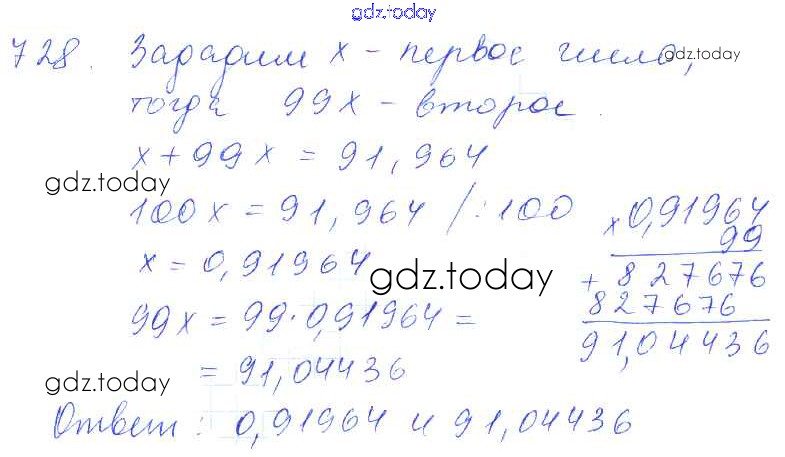 gdz.today
728. Зададим x - первое число,
gdz.today
тогда 99x - второе.
x + 99x = 91,964
gdz.today
100x = 91,964 /:100
x = 0,91964
gdz.today
99x = 99·0,91964 =
= 91,04436
gdz.today
× 0,91964
99
+ 827676
827676
91,04436
Ответ: 0,91964 и 91,04436